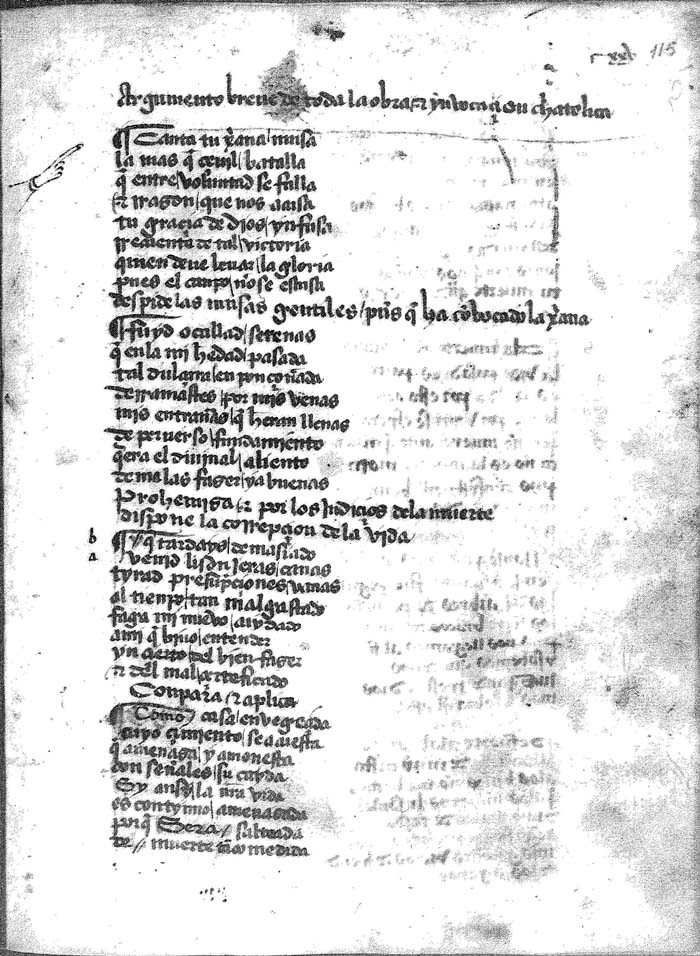 rxxv 115
Argumento breue de toda la obra & ynvocaçion chatolica
¶ Canta tu x̄ana / musa
la mas q̄ çeuil / batalla
q̄ entre / voluntad se falla
& rrazon / que nos acusa
tu graçia de dios / ynfusa
rrecuenta de tal / victoria
quien deue leuar / la gloria
pues el canpo / no se escusa
despide las musas gentiles / pues q̄ ha cōbocado la x̄ana
¶ fuyd o callad / serenas
q̄ en la mi hedad / pasada
tal dulçura / en ponçoñada
derramastes / por mis venas
mis entrañas / q̄ heran llenas
de peruerso / fundamiento
q̄era el diuinal / aliento
de malas fazer / ya buenas
Prohemiza & por los Judiçios dela muerte
dispone la correpçion de la vida
b ¶ y q̄ tardays / demasiado
a venid lisonjeras / canas
tyrad presūpçiones / vanas
al tienpo / tan malgastado
faga mi nueuo / cuydado
a mi q̄ biuo / entender
yn çierto / del bien fazer
& del mal / çerteficado
Conpara & aplica
¶ Como / casa envegeçida
cuyo çimiento / se acuesta
q̄ amenaza / y amonesta
con señales / su cayda
Sy ansy / la n̄ra vida
es contynuo / amenazada
porq̄ Sera / salteada
de // muerte tā medida